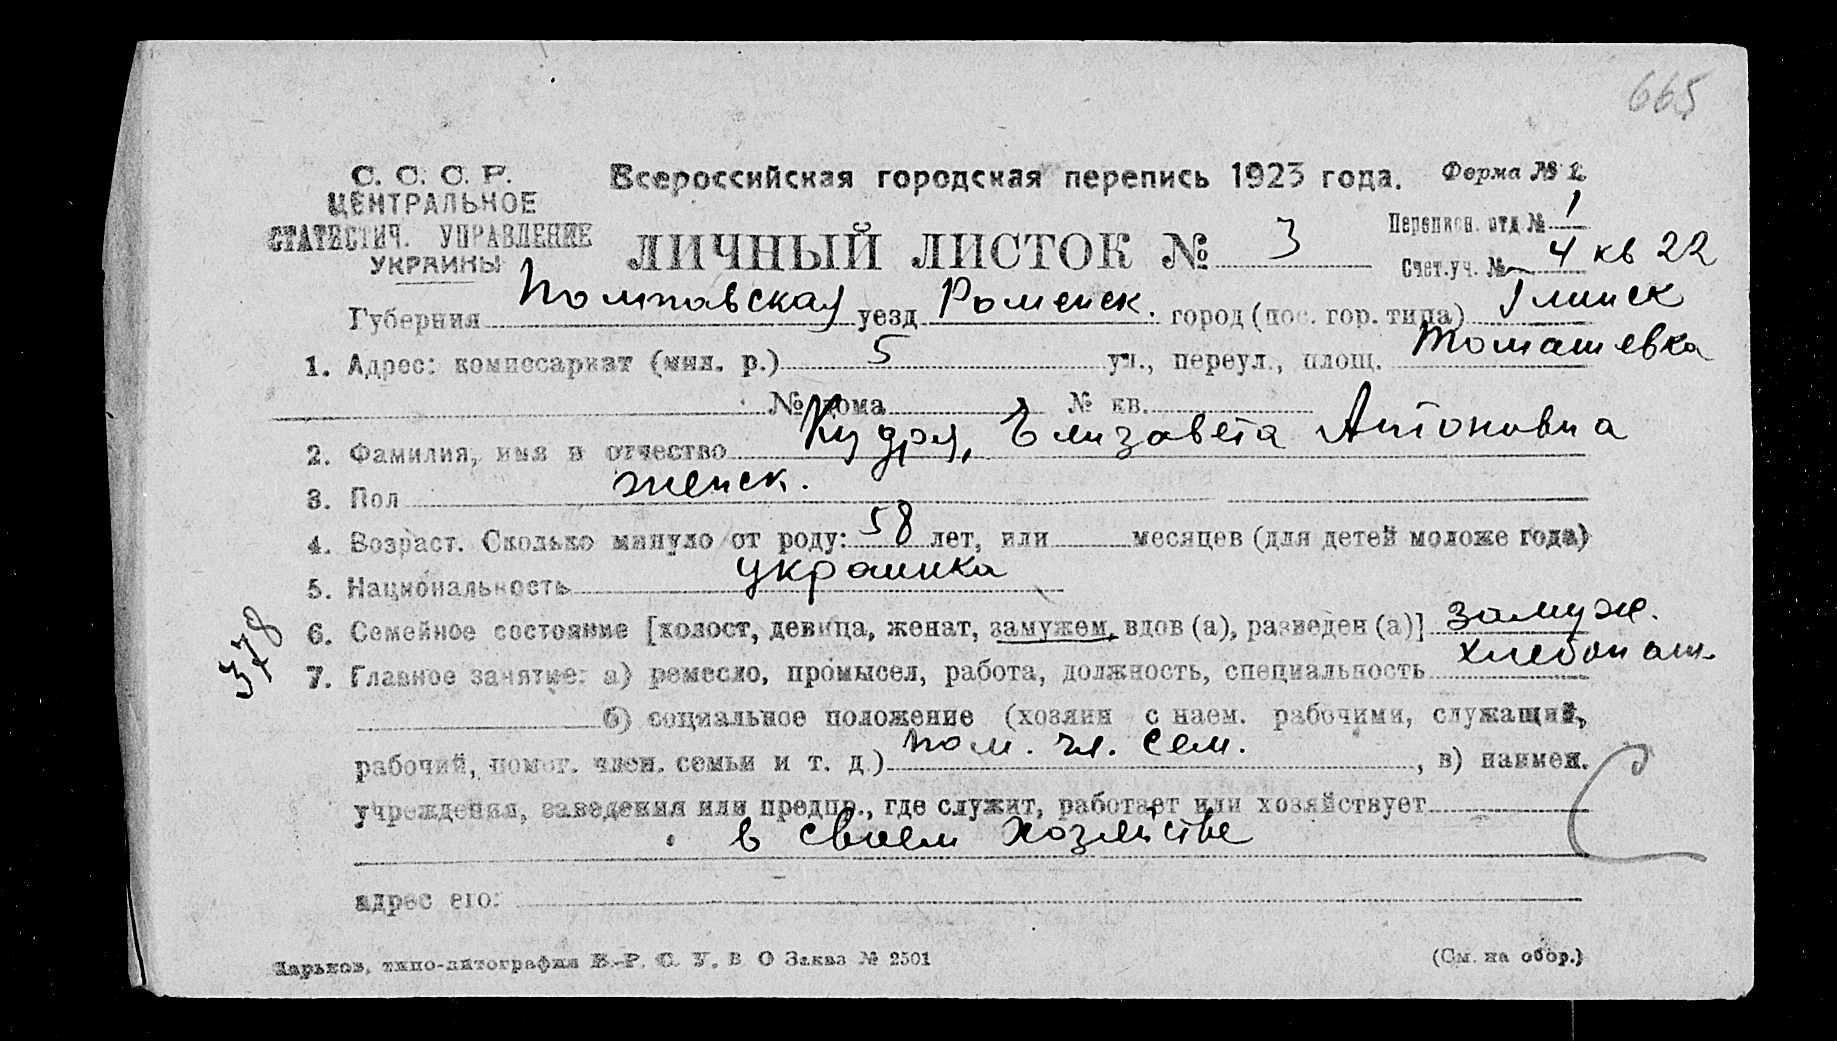 665
С. С. С. Р.
ЦЕНТРАЛЬНОЕ
СТАТИСТИЧ. УПРАВЛЕНИЕ
УКРАИНЫ
Всероссийская городская перепись 1923 года. Форма № 1.
ЛИЧНЫЙ ЛИСТОК № 3
Переписн. отд № 1
Счет. уч. № 4 кв 22
Губерния Полтавская уезд Роменск. город (пос. гор. типа) Глинск
1. Адрес: комиссариат (мил. р.) 5 ул., переул., площ. Томашевка
№ дома № кв.
2. Фамилия, имя и отчество Кудря, Елизавета Антоновна
3. Пол женск.
4. Возраст. Сколько минуло от роду: 58 лет, или месяцев (для детей моложе года)
5. Национальность украинка
6. Семейное состояние [холост, девица, женат, замужем, вдов (а), разведен (а)] замуж.
378
7. Главное занятие: а) ремесло, промысел, работа, должность, специальность хлебопаш.
б) социальное положение (хозяин с наем. рабочими, служащий,
рабочий, помог. член. семьи и т. д.) пом. чл. сем. , в) наимен.
учреждения, заведения или предпр., где служит, работает или хозяйствует
в своем хозяйстве
адрес его:
Харьков, типо-литография В.-Р. С. У. В О Заказ № 2501
(См. на обор.)